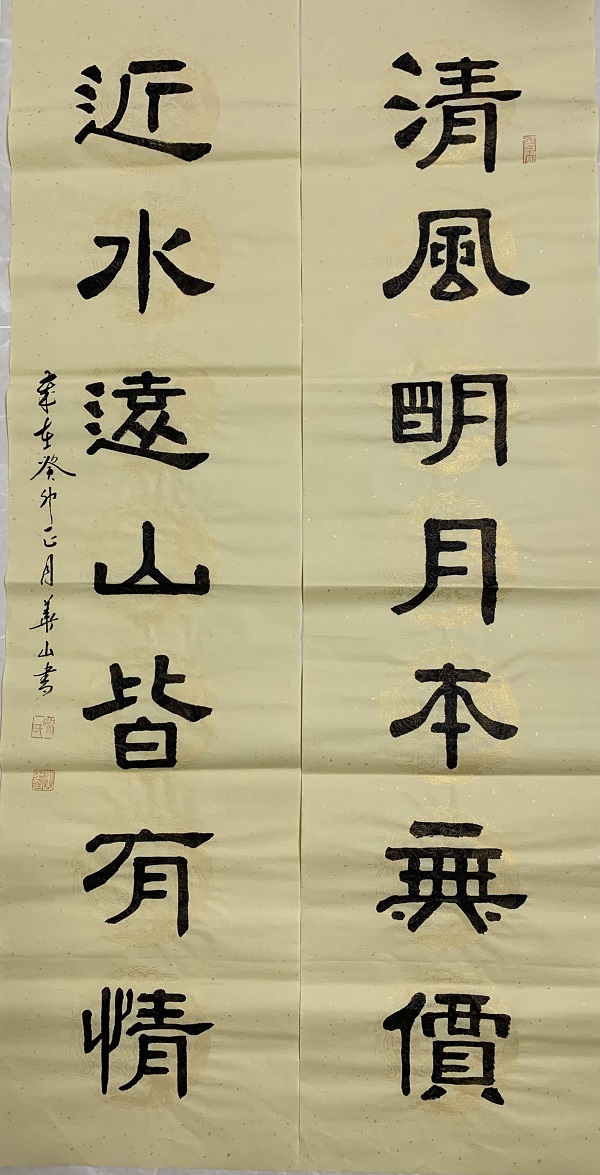 清風明月本無價
近水遠山皆有情
歲在癸卯正月華山書